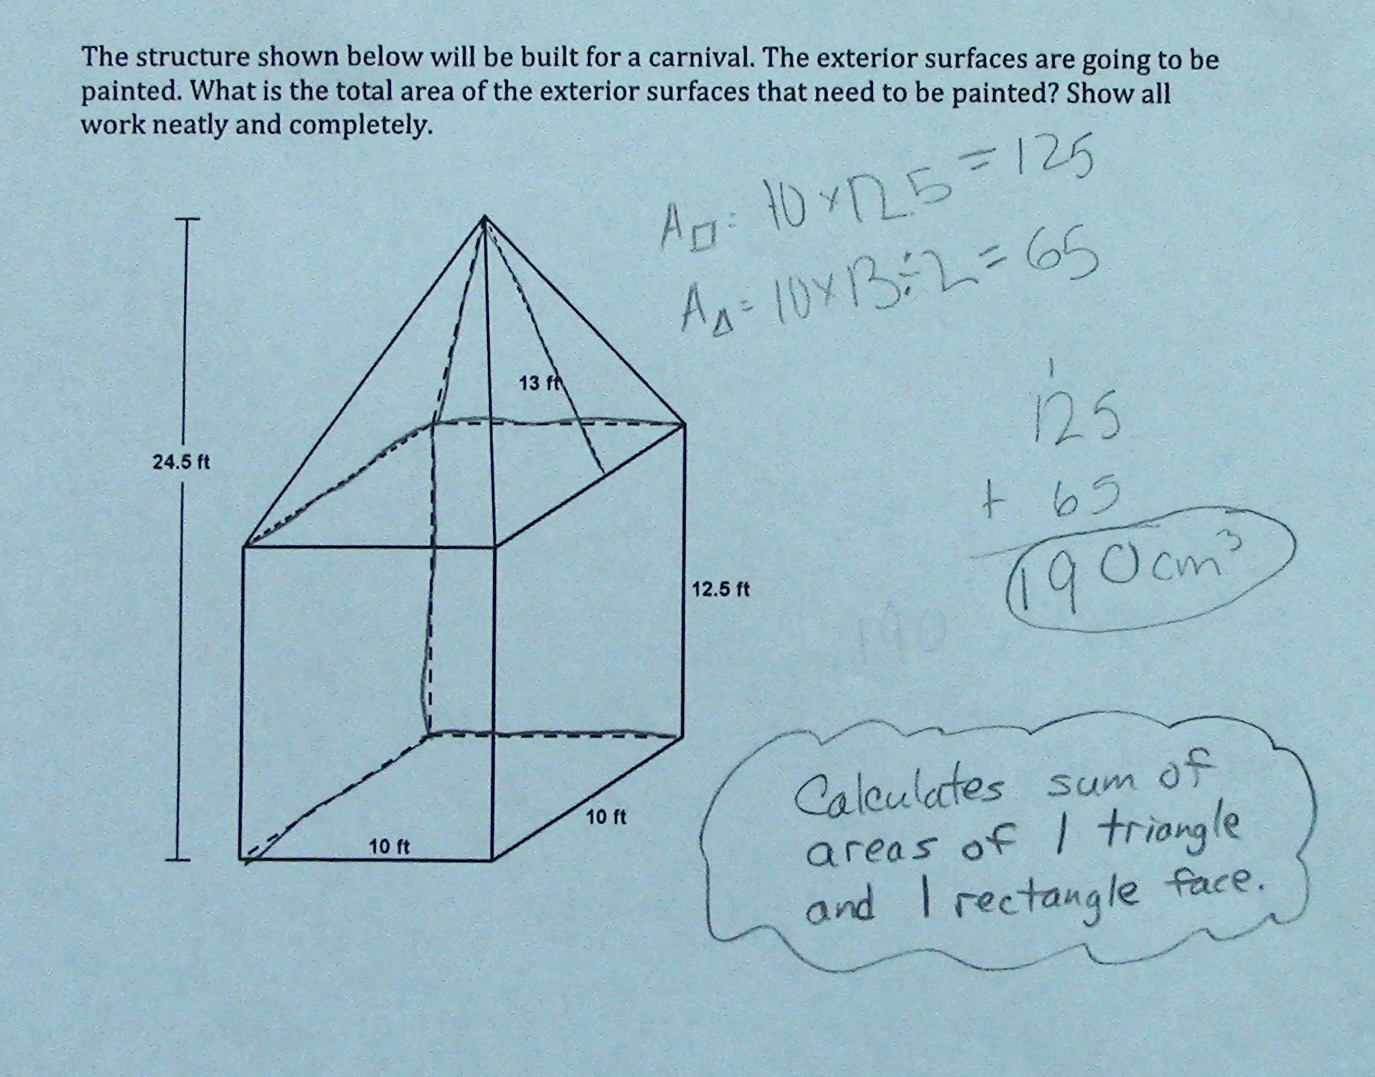 The structure shown below will be built for a carnival. The exterior surfaces are going to be
painted. What is the total area of the exterior surfaces that need to be painted? Show all
work neatly and completely.
A□= 10×12.5=125
A△=10×13÷2=65
13 ft
24.5 ft
12.5 ft
10 ft
10 ft
1
125
+ 65
190cm³
190
Calculates sum of
areas of 1 triangle
and 1 rectangle face.